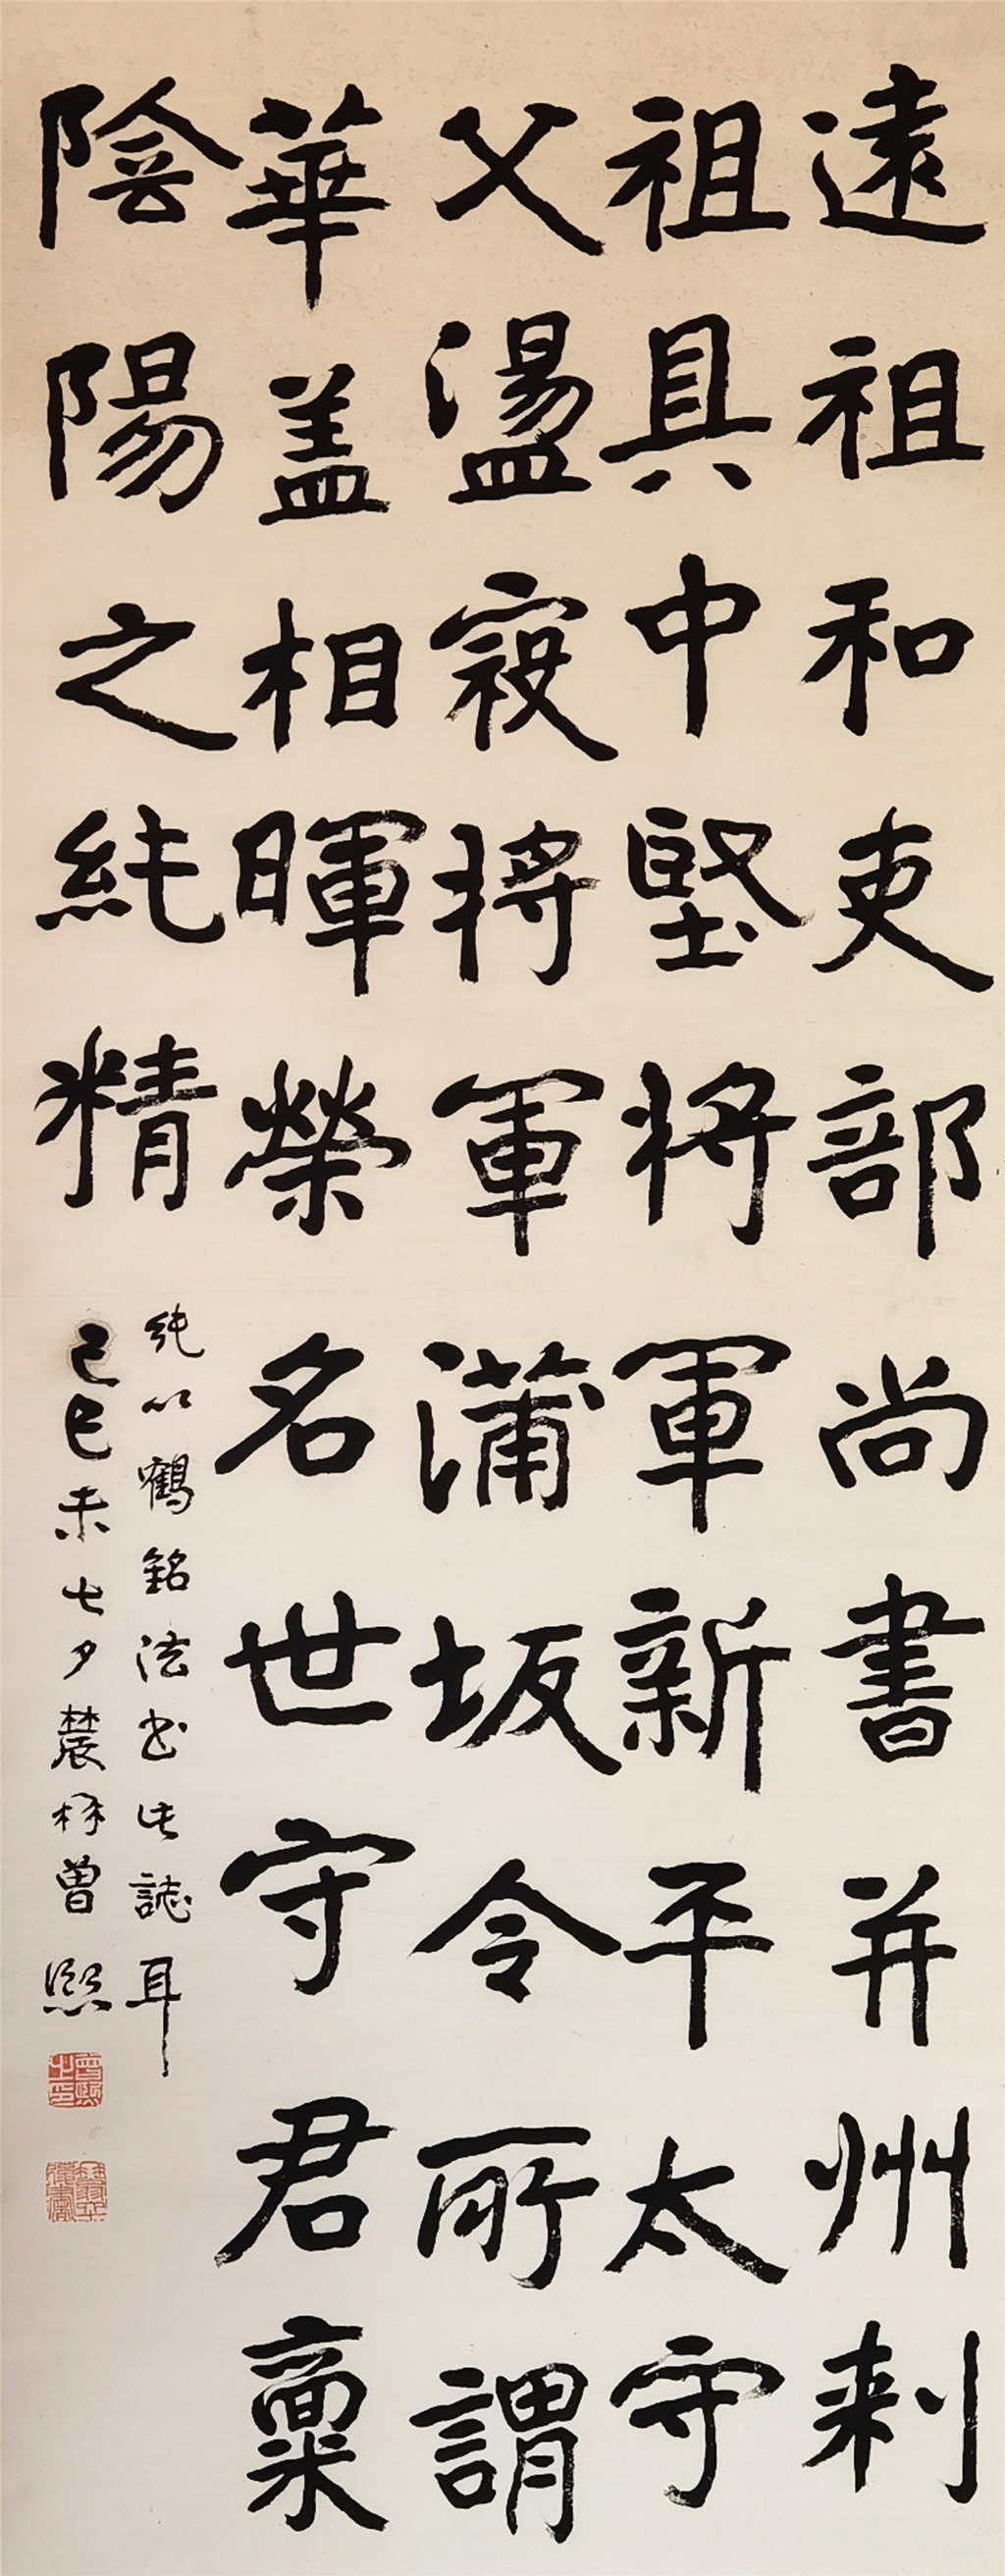 遠祖和吏部尚書并州刺
祖具中堅將軍新平太守
父盪寇將軍蒲坂令所謂
華盖相暉榮名世守君稟
陰陽之純精
純以鶴銘法書此誌耳
己巳未七夕農髯曾熙
曾熙之印